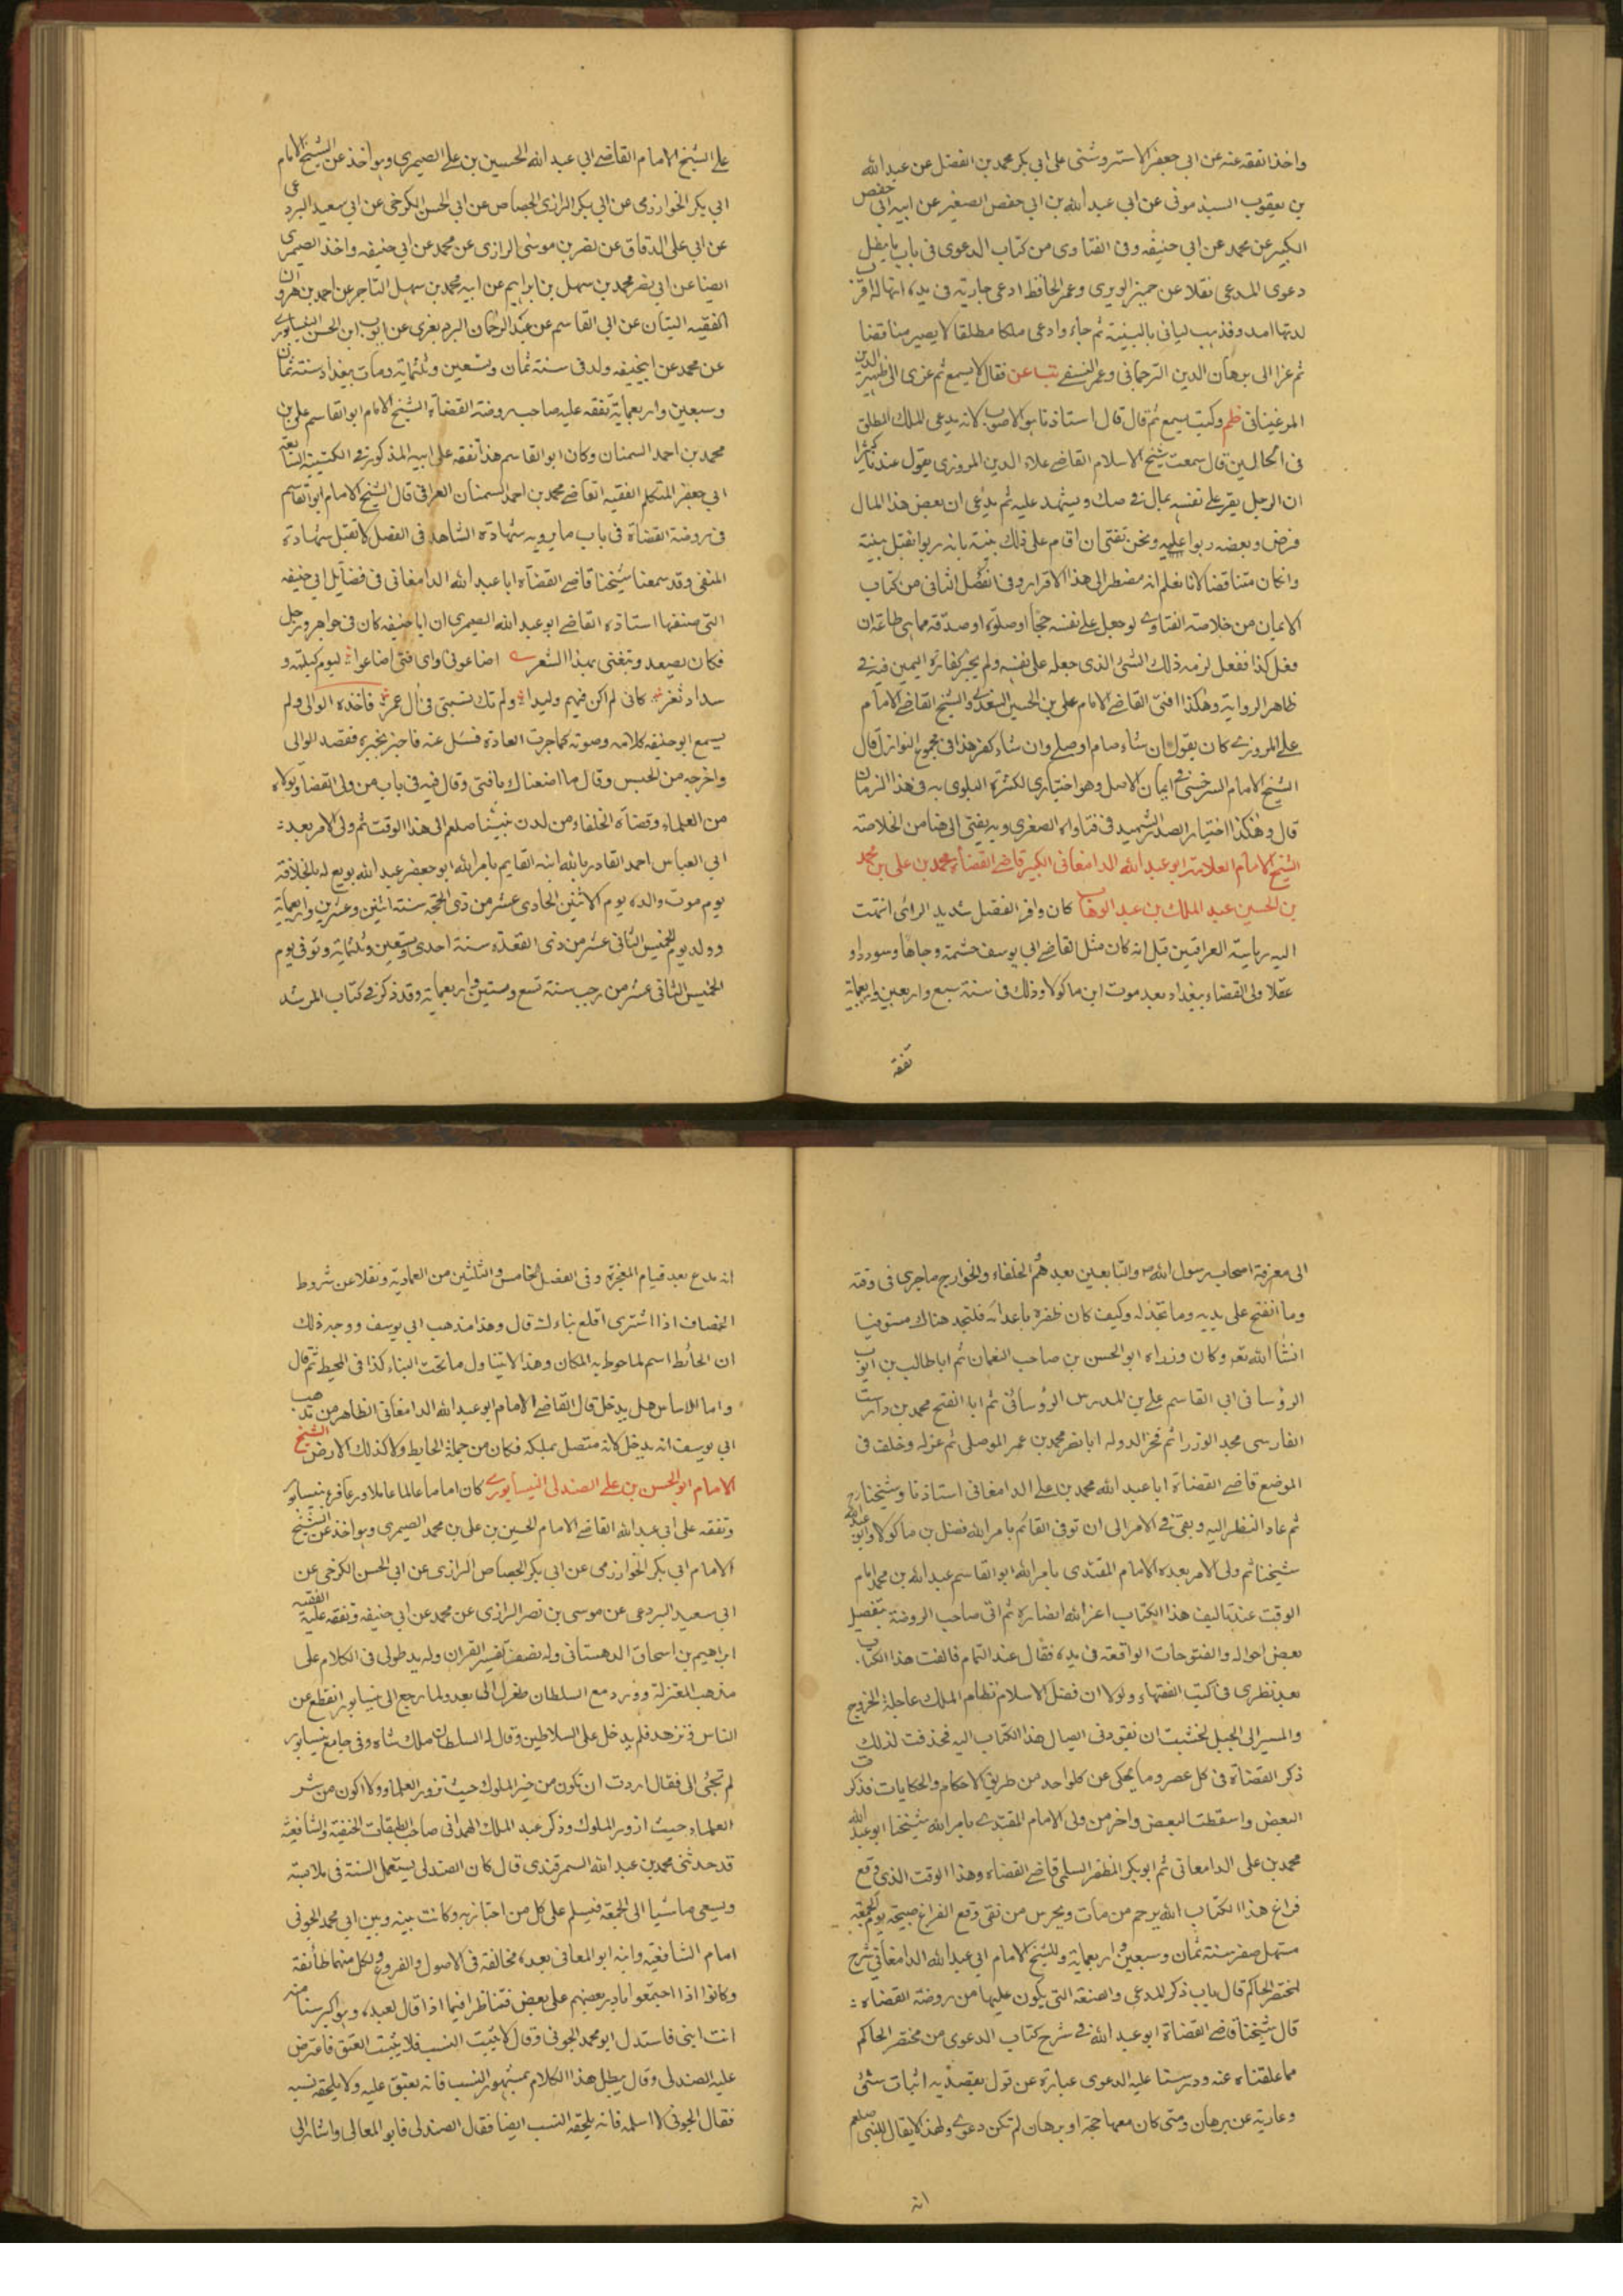 واخذ الفقه عنه عن ابي جعفر الاستروشنى على ابي بكر محمد بن الفضل عن عبد الله
بن يعقوب السبذمونى عن ابي عبد الله بن ابي حفص الصغير عن ابيه ابي حفص
الكبير عن محمد عن ابي حنيفه وفى الفتاوى من كتاب الدعوى فى باب ما يبطل
دعوى المدعى نقلا عن حمير الوبرى وعمر الحافظ ادعى جارية فى يده انها له اقر
لديها امه وذهب لياتى بالبينة ثم جاء وادعى ملكا مطلقا لا يصير مناقضا
ثم عزا الى برهان الدين الترجمانى وعمر النسفى فقال لا يسمع ثم عزى الى ظهير الدين
المرغينانى ظم وكتب يسمع ثم قال قال استاذنا هو الاصوب لانه يدعى الملك المطلق
فى الحالين قال سمعت شيخ الاسلام القاضى علاء الدين المروزى يقول عندنا كثيرا
ان الرجل يقر على نفسه بمال فى صك ويشهد عليه ثم يدعى ان بعض هذا المال
قرض وبعضه ربوا عليه ونحن نفتى ان اقام على ذلك بينة بانه ربوا تقبل بينة
وان كان متناقضا لانا نعلم انه مضطر الى هذا الاقرار وفى الفصل الثانى من كتاب
الايمان من خلاصة الفتاوى لو جعل على نفسه حجا او صلوة او صدقة مما هى طاعة ان
فعل كذا ففعل لزمه ذلك الشئ الذى جعله على نفسه ولم يجز كفارة اليمين فيه فى
ظاهر الرواية وهكذا افتى القاضى الامام على بن الحسين السغدى والشيخ القاضى الامام
على المروزى كان يقول ان شاء صام او صلى وان شاء كفر هذا فى مجموع النوازل قال
الشيخ الامام السرخسى فى ايمان الاصل وهو اختيارى لكثرة البلوى به فى هذا الزمان
قال وهكذا اختيار الصدر الشهيد فى فتاواه الصغرى وبه يفتى الى هنا من الخلاصة
الشيخ الامام العلامة ابو عبد الله الدامغانى الكبير قاضى القضاة محمد بن على بن محمد
بن الحسين عبد الملك بن عبد الوهاب كان وافر الفضل شديد الرائ انتهت
اليه رياسة العراقيين قيل انه كان مثل القاضى ابي يوسف حشمة وجاها وسوددا و
عقلا ولى القضاء ببغداد بعد موت ابن ماكولا وذلك فى سنة سبع واربعين واربعماية
تفقه
على الشيخ الامام القاضى ابي عبد الله الحسين بن على الصيمرى وهو اخذ عن الشيخ الامام
ابي بكر الخوارزمى عن ابي بكر الرازى الجصاص عن ابي الحسن الكرخى عن ابي سعيد البردعى
عن ابي على الدقاق عن نصر بن موسى الرازى عن محمد عن ابي حنيفه واخذ الصيمرى
ايضا عن ابي نصر محمد بن سهل بن ابراهيم عن ابيه محمد بن سهل التاجر عن احمد بن هرون
الفقيه التبان عن ابي القاسم عن عبد الرحمان البرديغرى عن ايوب ابن الحسن النيسابورى
عن محمد عن ابيحنيفه ولد فى سنة ثمان وتسعين وثلثماية ومات ببغداد سنة ثمان
وسبعين واربعماية تفقه عليه صاحب روضة القضاة الشيخ الامام ابو القاسم على بن
محمد بن احمد السمنان وكان ابو القاسم هذا تفقه على ابيه المذكور فى الكتيبة السابعة
ابي جعفر المتكلم الفقيه القاضى محمد بن احمد السمنان العراقى قال الشيخ الامام ابو القاسم
فى روضة القضاة فى باب ما يرويه شهادة الشاهد فى الفصل لا تقبل شهادة
المغنى وقد سمعنا شيخنا قاضى القضاة ابا عبد الله الدامغانى فى فضائل ابي حنيفه
التى صنفها استاذه القاضى ابو عبد الله الصيمرى ان ابا حنيفه كان فى جواره رجل
فكان يصعد ويتغنى بهذا الشعر اضاعونى واى فتى اضاعوا ليوم كريهة و
سداد ثغر كانى لم اكن فيهم وليدا ولم تك نسبتى فى آل عمر فاخذه الوالى ولم
يسمع ابو حنيفه كلامه وصوته كما جرت العادة فسئل عنه فاخبر بخبره فقصد الوالى
واخرجه من الحبس وقال ما اضعناك يا فتى وقال فيه فى باب من ولى القضا وهؤلاء
من العلماء وقضاة الخلفاء من لدن نبينا صلعم الى هذا الوقت ثم ولى الامر بعد
ابي العباس احمد القادر بالله ابنه القايم بامر الله ابو جعفر عبد الله بويع له بالخلافة
يوم موت والده يوم الاثنين الحادى عشر من ذى الحجة سنة اثنين وعشرين واربعماية
وولد يوم الخميس الثانى عشر من ذى القعدة سنة احدى وتسعين وثلثماية وتوفى يوم
الخميس الثانى عشر من رجب سنة تسع وستين واربعماية وقد ذكر فى كتاب المرشد
الى معرفة اصحاب رسول الله ص والتابعين بعدهم الخلفاء والخوارج ما جرى فى وقته
وما انفتح على يديه وما تجدد له وكيف كان ظفره باعدائه فلتجد هناك مستوفيا
انشا الله تع وكان وزراه ابو الحسن بن صاحب النعمان ثم ابا طالب بن ايوب
الرؤسا فى ابي القاسم على بن المدرس الرؤسائى ثم ابا الفتح محمد بن دارست
الفارسى مجد الوزرا ثم فخر الدوله ابا نصر محمد بن عمر الموصلى ثم عزله وخلف فى
الموضع قاضى القضاة ابا عبد الله محمد بن على الدامغانى استاذنا وشيخنا رح
ثم عاد النظر اليه وبقى فى الامر الى ان توفى القائم بامر الله فضل بن ماكولا وابو عبد الله
شيخنا ثم ولى الامر بعده الامام المقتدى بامر الله ابو القاسم عبد الله بن محمد امام
الوقت عند تاليف هذا الكتاب اعز الله انصاره ثم اتى صاحب الروضة بتفصيل
بعض احواله والفتوحات الواقعة فى يده فقال عند التمام فالفت هذا الكتاب
بعد نظرى فى كتب الفقهاء ولولا ان فضل الاسلام نظام الملك عاجلة الخروج
والمسير الى الجبل فخشيت ان تفوتنى ايصال هذا الكتاب اليه فحذفت لذلك
ذكر القضاة فى كل عصر وما يحكى عن كلواحد من طريق الاحكام والحكايات فذكرت
البعض واسقطت البعض واخر من ولى الامام المقتدى بامر الله شيخنا ابو عبد الله
محمد بن على الدامغانى ثم ابو بكر المظفر السلمى قاضى القضاه وهذا الوقت الذى وقع
فراغ هذا الكتاب الله يرحم من مات ويحرس من نقى وقع الفراغ صبيحة يوم الجمعة
مستهل صفر سنة ثمان وسبعين واربعماية وللشيخ الامام ابي عبد الله الدامغانى شرح
لمختصر الحاكم قال باب ذكر المدعى والصنعة التى يكون عليها من روضة القضاة
قال شيخنا قاضى القضاة ابو عبد الله فى شرح كتاب الدعوى من مختصر الحاكم
مما علقناه عنه ودرسنا عليه الدعوى عبارة عن قول يقصد به اثبات شئ
وعارية عن برهان ومتى كان معها حجة او برهان لم تكن دعوى ولهذا لا يقال للنبى صلعم
انه
انه مدع بعد قيام المعجزة وفى الفصل الخامس والثلثين من العمادية ونقلا عن شروط
الخصاف اذا اشترى اقلع بناءك قال وهذا مذهب ابي يوسف ووجه ذلك
ان الحائط اسم لما حوط به المكان وهذا لا يتناول ما تحت البناء كذا فى المحيط ثم قال
واما الاساس هل يدخل قال القاضى الامام ابو عبد الله الدامغانى الظاهر من مذهب
ابي يوسف انه يدخل لانه متصل بملكه فكان من جملة الحايط ولا كذلك الارض الشيخ
الامام ابو الحسن بن على الصندلى النيسابورى كان اماما عالما عاملا ورعا فرع بنيسابور
وتفقه على ابي عبد الله القاضى الامام الحسين بن على بن محمد الصيمرى وهو اخذ عن الشيخ
الامام ابي بكر الخوارزمى عن ابي بكر الجصاص الرازى عن ابي الحسن الكرخى عن
ابي سعيد البردعى عن موسى بن نصر الرازى عن محمد عن ابي حنيفه وتفقه عليه الفقيه
ابراهيم بن اسحاق الدهستانى وله نصف تفسير القران وله يد طولى فى الكلام على
مذهب المعتزلة وورد مع السلطان طغرل الى بغداد ولما رجع الى نيسابور انقطع عن
الناس وتزهد فلم يدخل على السلاطين وقال له السلطان ملك شاه وفى جامع نيسابور
لم تجئ الى فقال اردت ان تكون من خير الملوك حيث تزور العلماء ولا اكون من شر
العلماء حيث ازور الملوك وذكر عبد الملك الهمدانى صاحب الطبقات الحنفية والشافعية
قد حدثنى محمد بن عبد الله السمرقندى قال كان الصندلى يستعمل السنة فى ملابسه
ويسعى ماشيا الى الجمعة فيسلم على كل من اجتاز به وكانت بينه وبين ابي محمد الجوينى
امام الشافعية وابنه ابو المعالى بعده مخالفة فى الاصول والفروع ولكل منهما طائفة
وكانوا اذا اجتمعوا بعضهم على بعض فتناظرا فيما اذا قال لعبده وهو اكبر سنا منه
انت ابنى فاستدل ابو محمد الجوينى وقال لا يثبت النسب فلا يثبت العتق فاعترض
عليه الصندلى وقال يبطل هذا الكلام بمشهور النسب فانه يعتق عليه ولا يلحقه نسبه
فقال الجوينى لا اسلم فانه يلحقه النسب ايضا فقال الصندلى فابو المعالى واشار الى